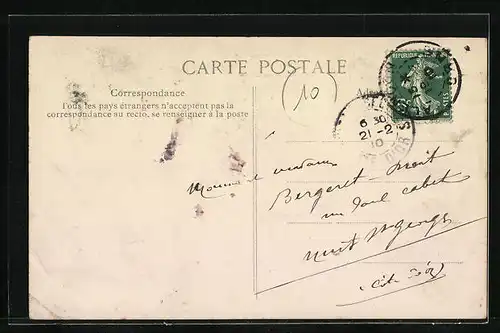 CARTE POSTALE
Correspondance
Tous les pays étrangers n'acceptent pas la
correspondance au recto, se renseigner à la poste
10
REPUBLIQUE
6 30
21-2
10
D'OR
Bergeret
rue Paul Cabet
Nuit St Georges
Côte d'Or